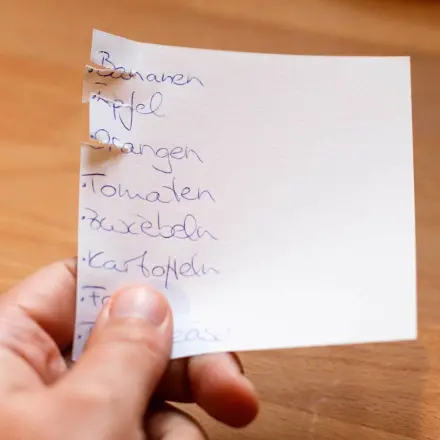 ·Bananen
·Äpfel
·Orangen
·Tomaten
·Zwiebeln
·Kartoffeln